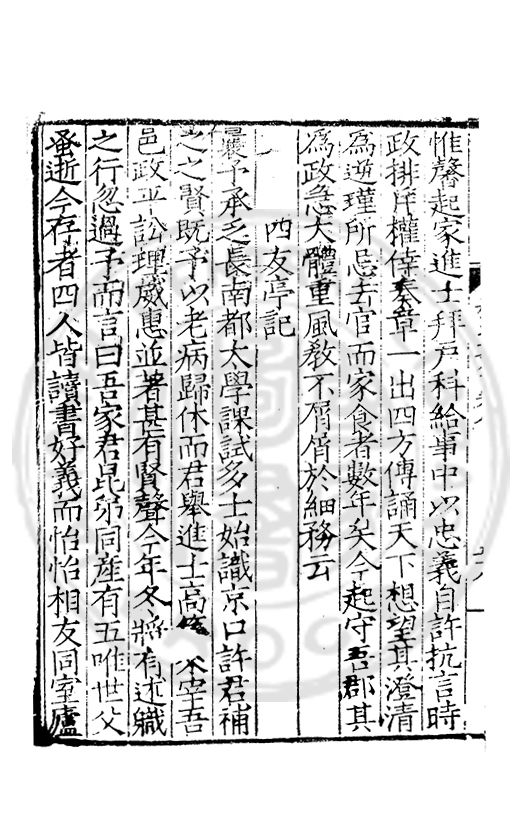 惟馨起家進士拜戶科給事中以忠義自許抗言時
政排斥權倖奏章一出四方傳誦天下想望其澄清
為逆瑾所忌去官而家食者數年矣今起守吾郡其
為政急大體重風教不屑屑於細務云
四友亭記
曩予承乏長南都太學課試多士始識京口許君補
之之賢既予以老病歸休而君舉進士高 來宰吾
邑政平訟理威惠並著甚有賢聲今年冬將有述職
之行忽過予而言曰吾家君昆弟同產有五唯世父
蚤逝今存者四人皆讀書好義而怡怡相友同室廬